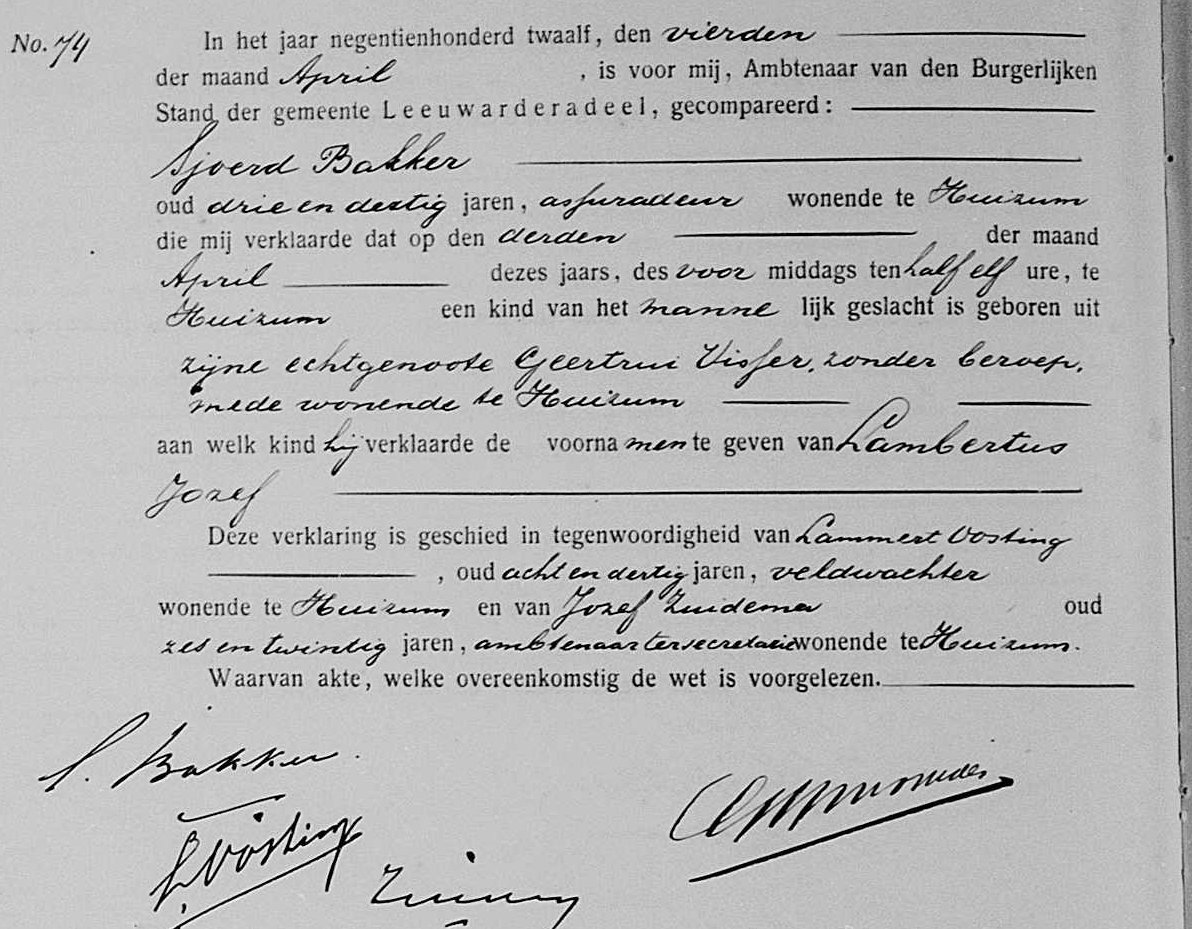 No. 74
In het jaar negentienhonderd twaalf, den vierden
der maand April, is voor mij, Ambtenaar van den Burgerlijken
Stand der gemeente Leeuwarderadeel, gecompareerd:
Sjoerd Bakker
oud drie en dertig jaren, assuradeur wonende te Huizum
die mij verklaarde dat op den derden der maand
April dezes jaars, des voor middags ten half elf ure, te
Huizum een kind van het manne lijk geslacht is geboren uit
zijne echtgenoote Geertrui Visser, zonder beroep,
mede wonende te Huizum
aan welk kind hij verklaarde de voorna men te geven van Lambertus
Jozef
Deze verklaring is geschied in tegenwoordigheid van Lammert Vosting
, oud acht en dertig jaren, veldwachter
wonende te Huizum en van Jozef Zuidema oud
zes en twintig jaren, ambtenaar ter secretarie wonende te Huizum.
Waarvan akte, welke overeenkomstig de wet is voorgelezen.
S. Bakker.
L Vosting